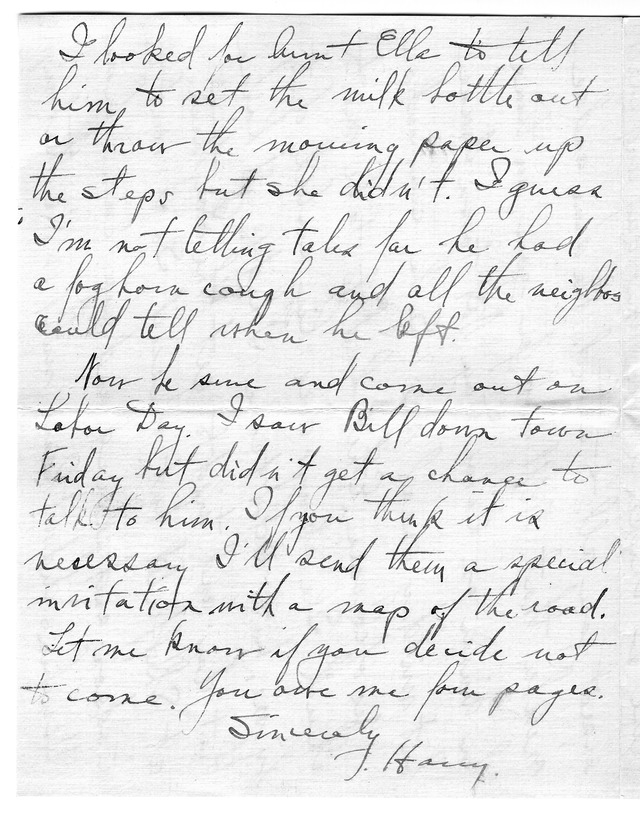 I looked for Aunt Ella to tell
him to set the milk bottle out
or throw the morning paper up
the steps but she didn't. I guess
I'm not telling tales for he had
a foghorn cough and all the neighbors
could tell when he left.
Now be sure and come out on
Labor Day. I saw Bill down town
Friday but didn't get a chance to
talk to him. If you think it is
necessary I'll send them a special
invitation with a map of the road.
Let me know if you decide not
to come. You owe me four pages.
Sincerely
J. Harry.